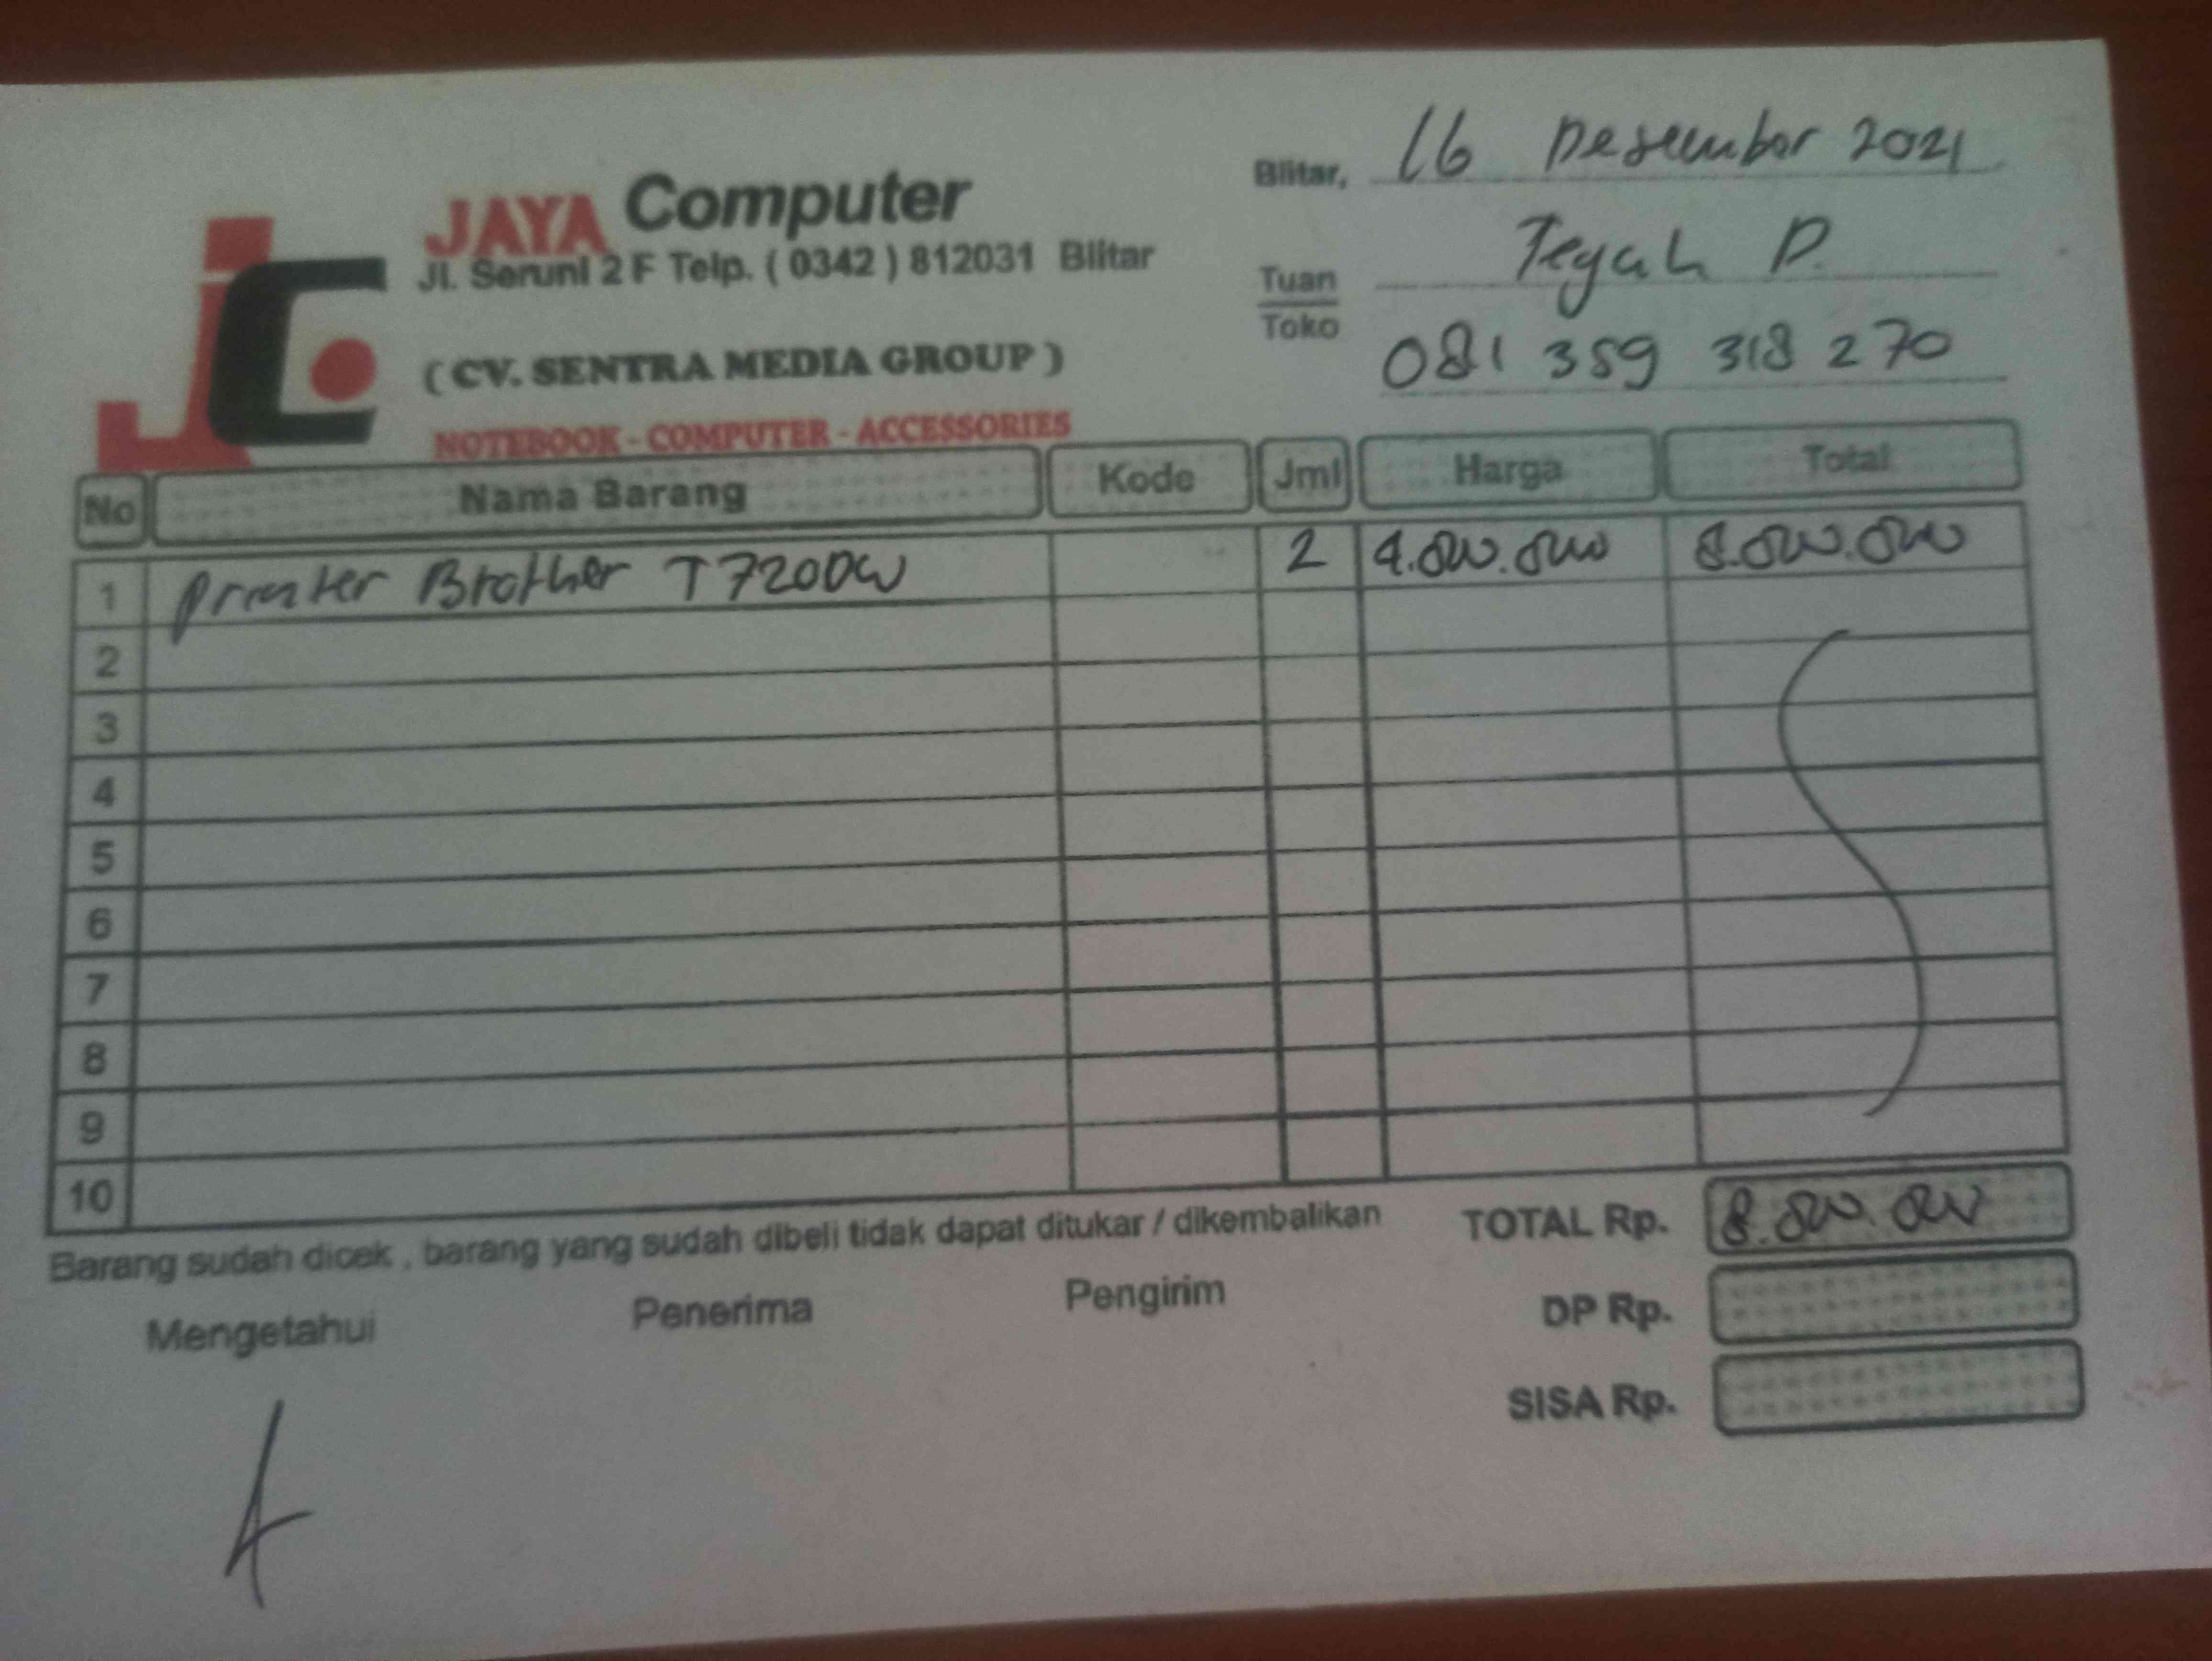 JC
JAYA Computer
Jl. Seruni 2 F Telp. ( 0342 ) 812031 Blitar
( CV. SENTRA MEDIA GROUP )
NOTEBOOK - COMPUTER - ACCESSORIES
Blitar, 16 Desember 2021
Tuan Teguh P.
Toko 081 359 318 270
No Nama Barang Kode Jml Harga Total
1 Printer Brother T720DW 2 4.000.000 8.000.000
2
3
4
5
6
7
8
9
10
Barang sudah dicek , barang yang sudah dibeli tidak dapat ditukar / dikembalikan
TOTAL Rp. 8.000.000
Mengetahui Penerima Pengirim
DP Rp.
SISA Rp.